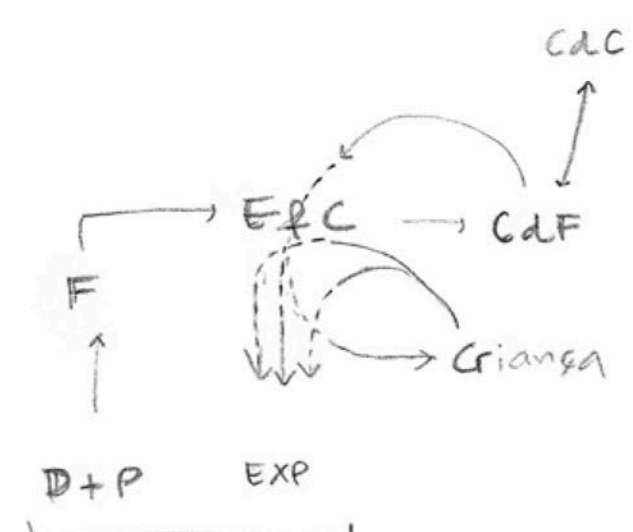 CdC
EfC CdF
F
Criança
D+P EXP